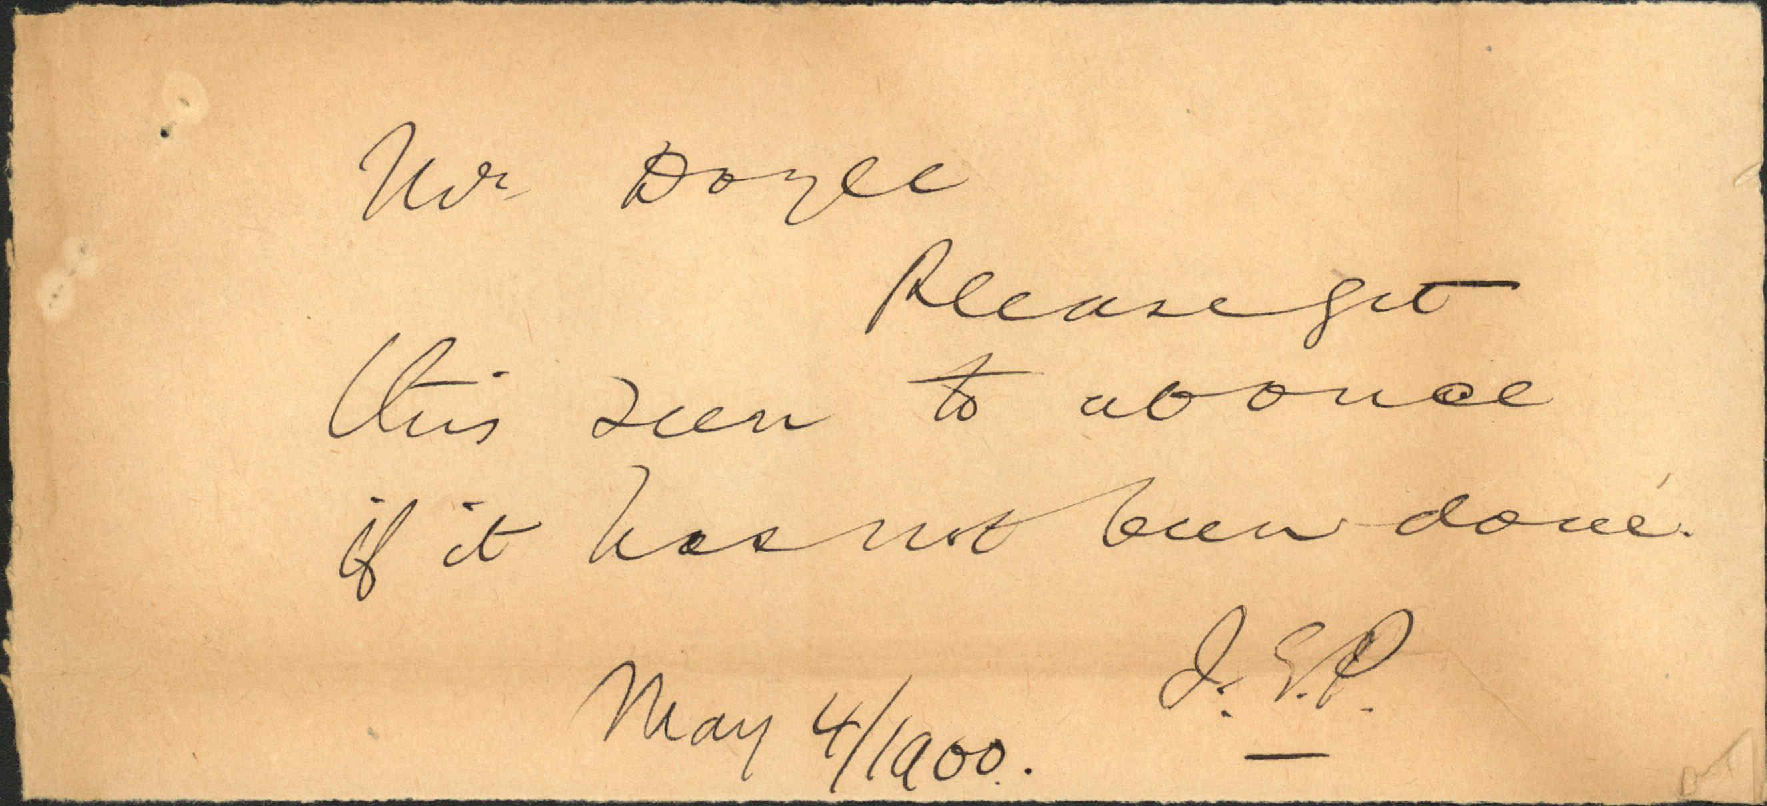 Mr Doyle
Please get
this seen to at once
if it has not been done.
J. G. P.
May 4/1900.